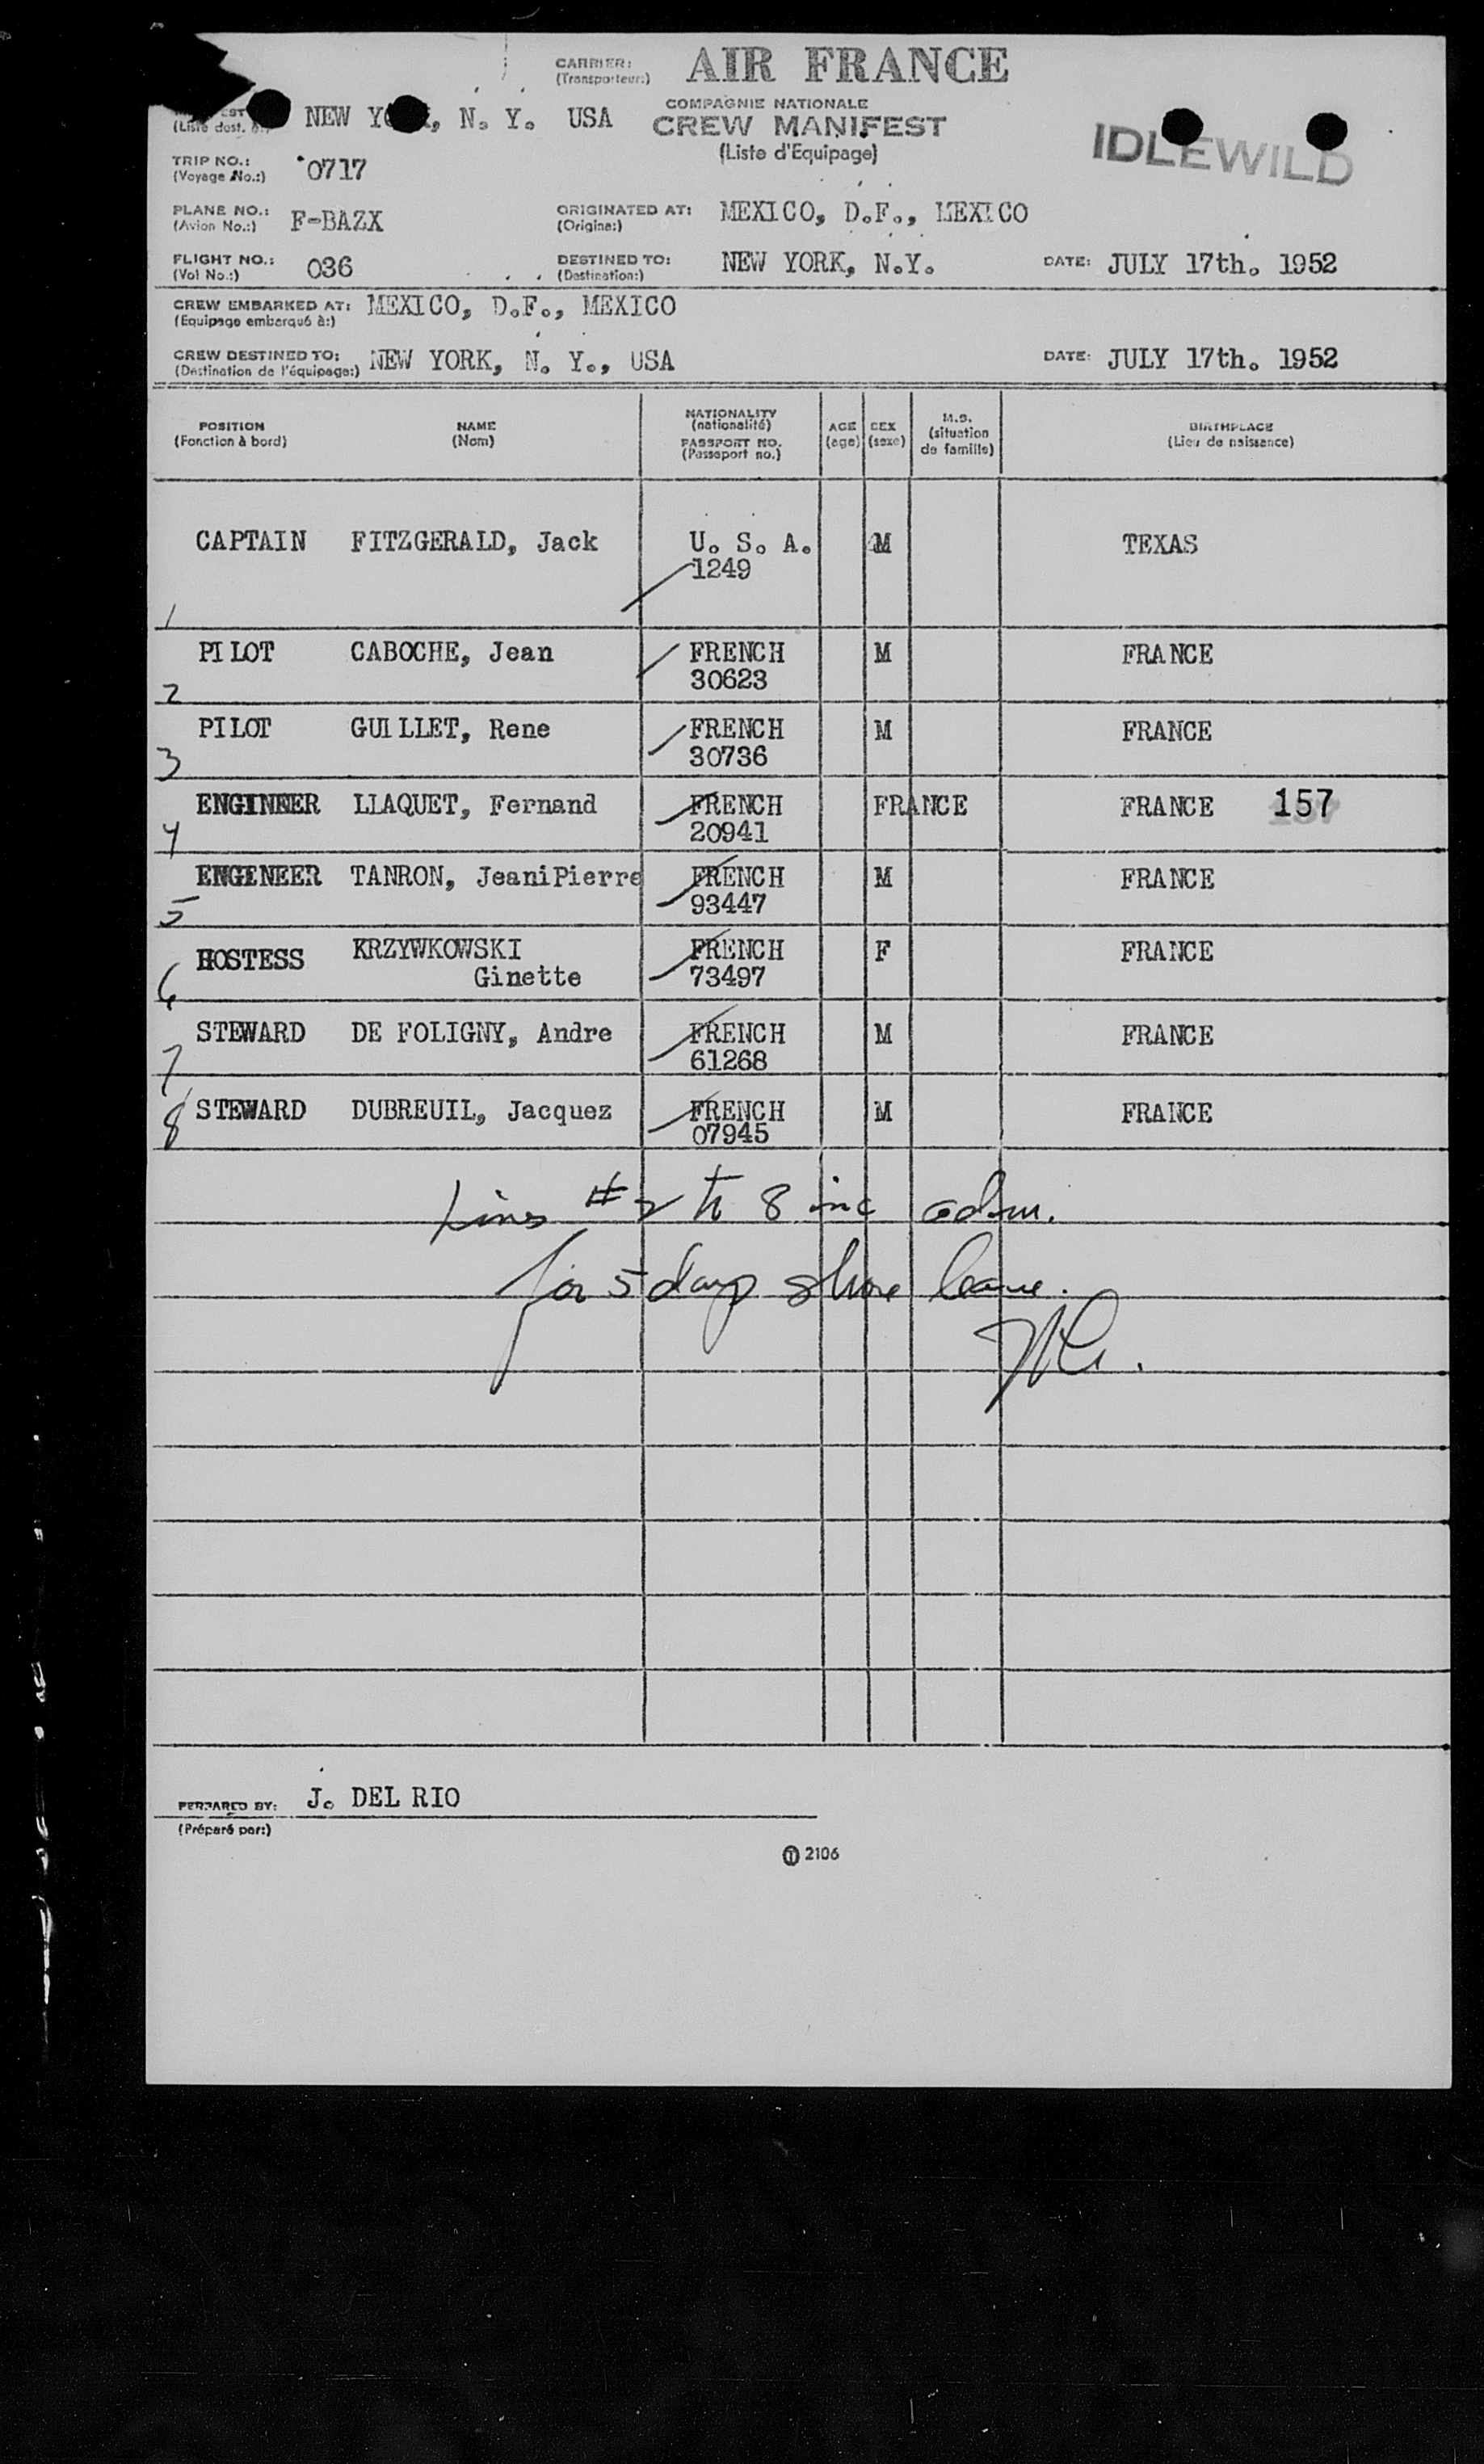 CARRIER: AIR FRANCE
(Transporteur:)
COMPAGNIE NATIONALE
(Liste dest. NEW YORK, N. Y. USA CREW MANIFEST
(Liste d'Equipage) IDLEWILD
TRIP NO.: 0717
(Voyage No.:)
PLANE NO.: F-BAZX ORIGINATED AT: MEXICO, D.F., MEXICO
(Avion No.:) (Origine:)
FLIGHT NO.: 036 DESTINED TO: NEW YORK, N.Y. DATE: JULY 17th. 1952
(Vol No.:) (Destination:)
CREW EMBARKED AT: MEXICO, D.F., MEXICO
(Equipage embarqué à:)
CREW DESTINED TO: NEW YORK, N. Y., USA DATE: JULY 17th. 1952
(Destination de l'équipage:)
POSITION NAME NATIONALITY AGE SEX M.S. BIRTHPLACE
(Fonction à bord) (Nom) (nationalité) (age) (sexe) (situation (Lieu de naissance)
PASSPORT NO. de famille)
(Passeport no.)
CAPTAIN FITZGERALD, Jack U. S. A. M TEXAS
1249
1
PILOT CABOCHE, Jean FRENCH M FRANCE
2 30623
PILOT GUILLET, Rene FRENCH M FRANCE
3 30736
ENGINEER LLAQUET, Fernand FRENCH FRANCE FRANCE 157
4 20941
ENGENEER TANRON, JeaniPierre FRENCH M FRANCE
5 93447
HOSTESS KRZYWKOWSKI FRENCH F FRANCE
6 Ginette 73497
STEWARD DE FOLIGNY, Andre FRENCH M FRANCE
7 61268
8 STEWARD DUBREUIL, Jacquez FRENCH M FRANCE
07945
Lines #2 to 8 inc adm.
for 5 days shore leave.
PERPARED BY: J. DEL RIO
(Préparé par:)
2106